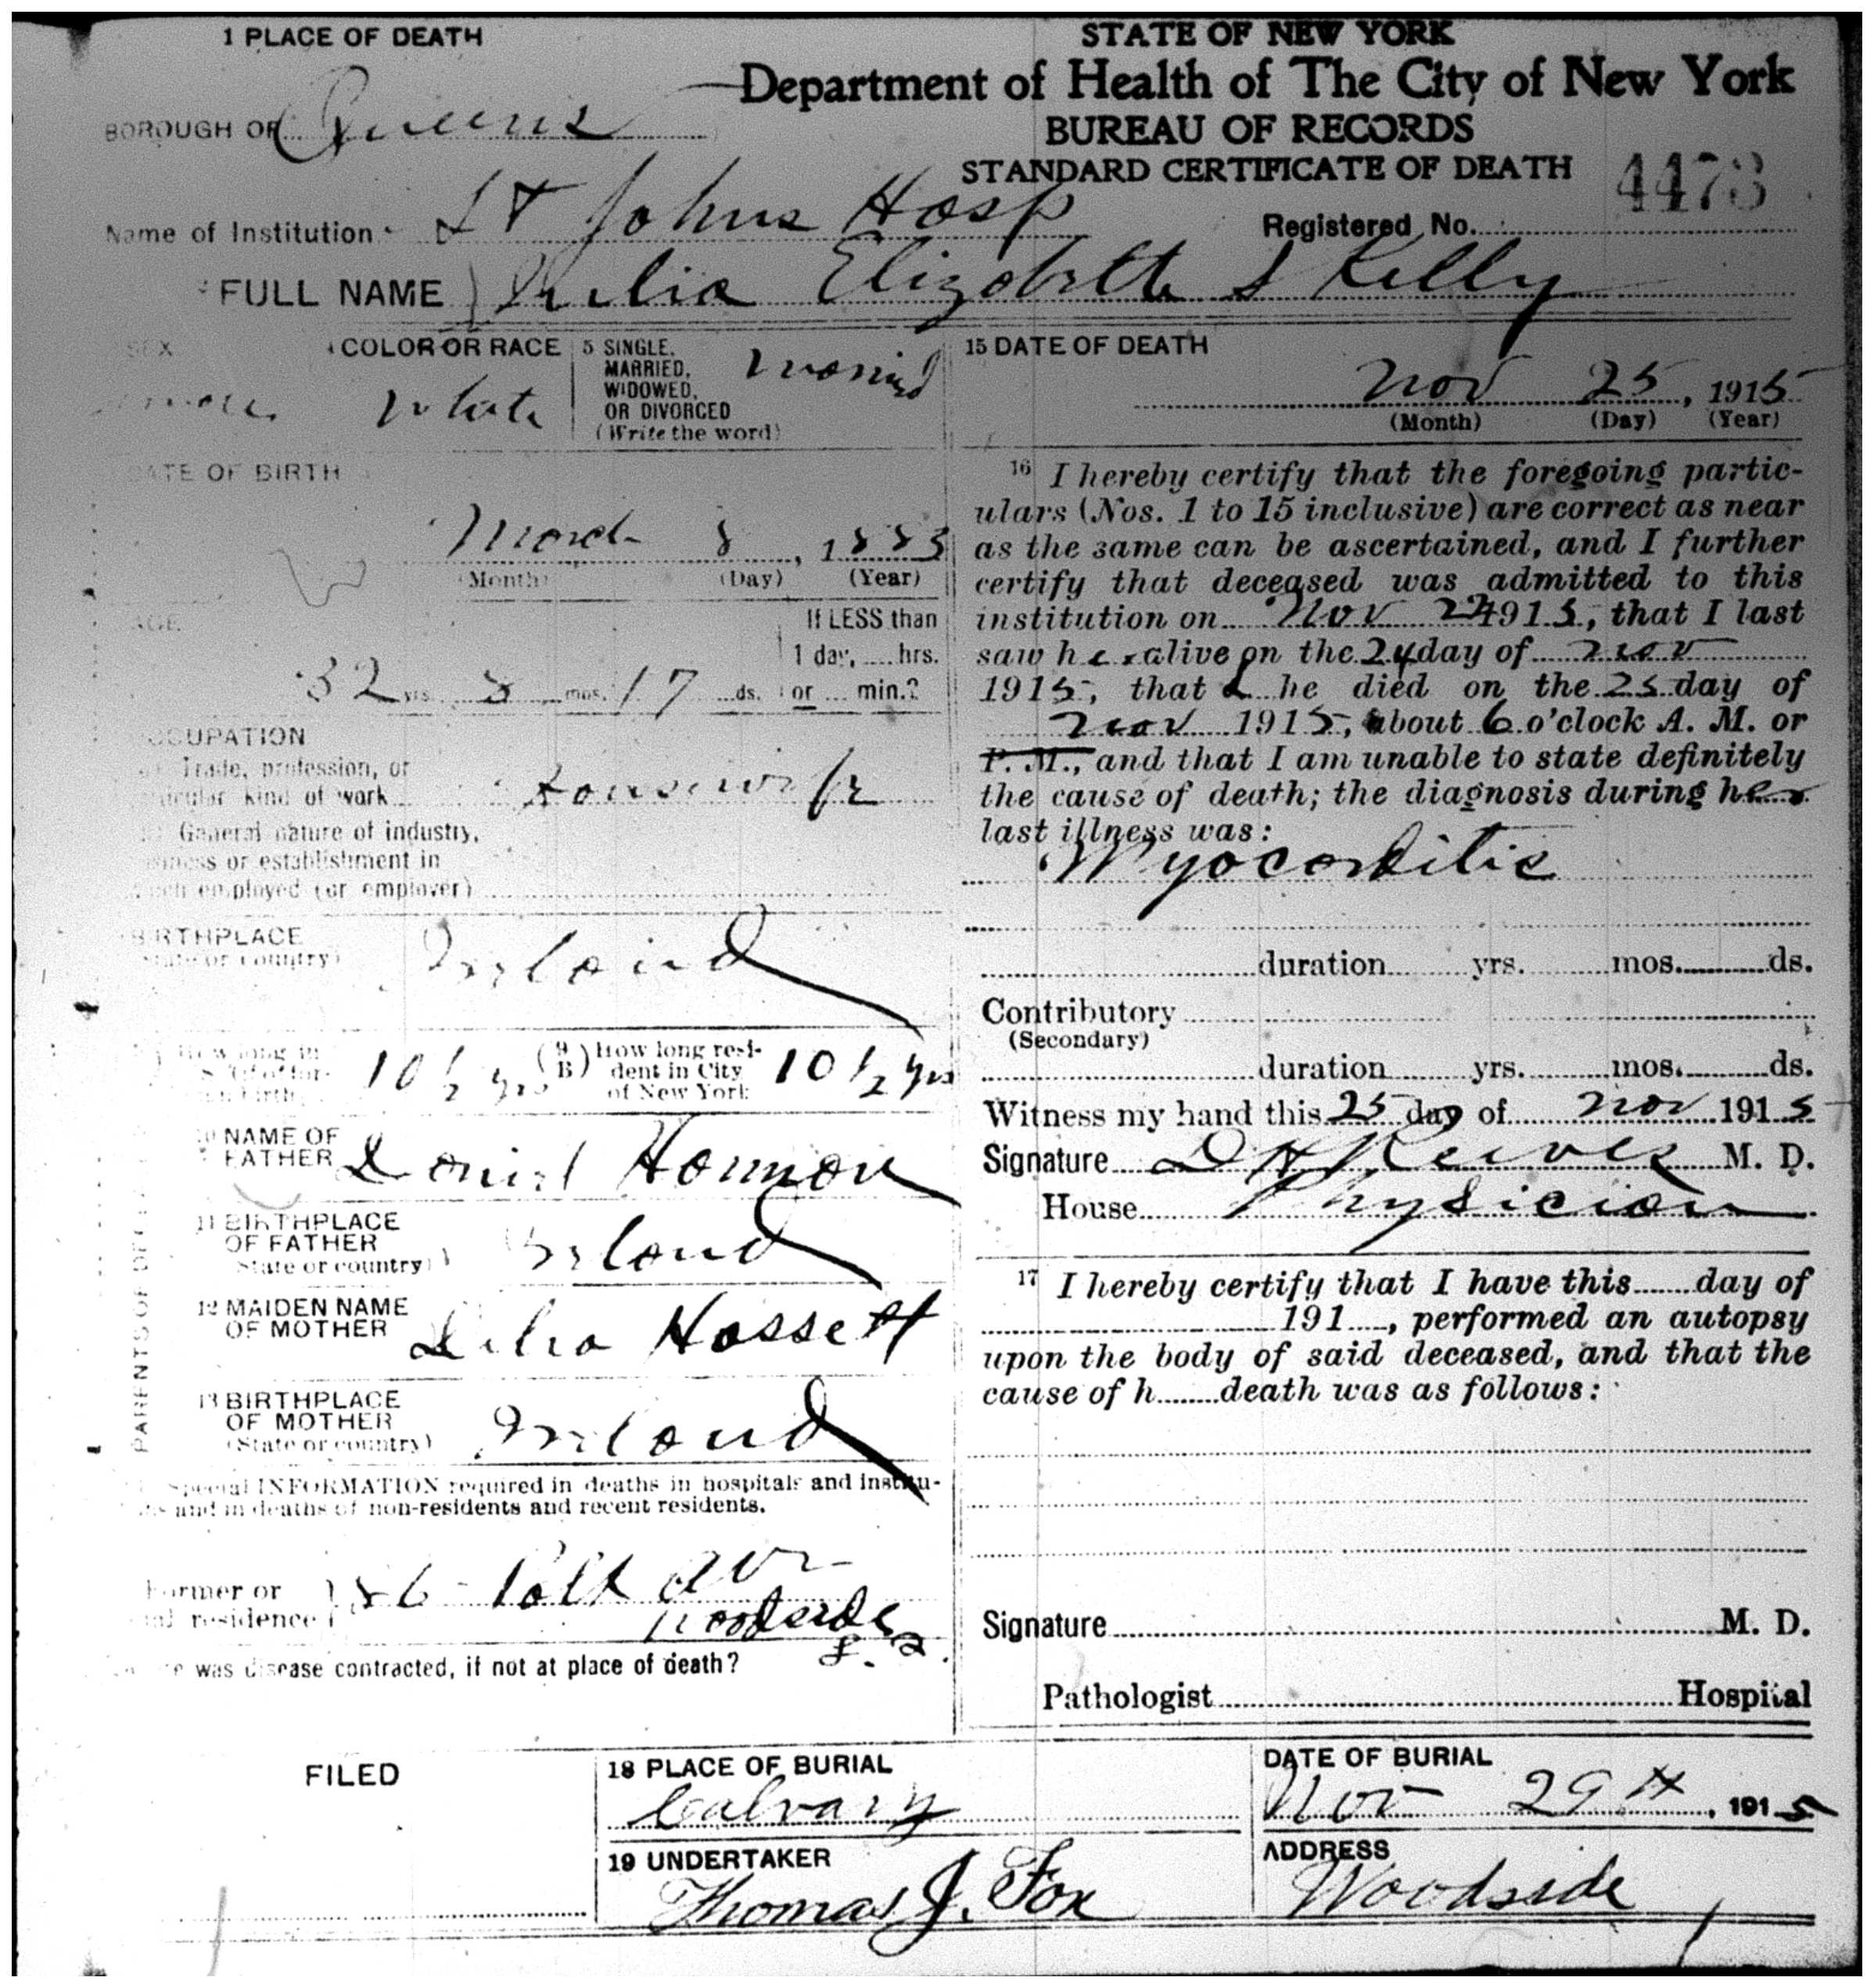 1 PLACE OF DEATH
STATE OF NEW YORK
Department of Health of The City of New York
BUREAU OF RECORDS
STANDARD CERTIFICATE OF DEATH
BOROUGH OF Queens
4473
Name of Institution St Johns Hosp
Registered No.
FULL NAME Elizabeth S Kelly
SEX
COLOR OR RACE
White
5 SINGLE,
MARRIED,
WIDOWED,
OR DIVORCED
(Write the word)
Married
15 DATE OF DEATH
Nov 25, 1915
(Month) (Day) (Year)
DATE OF BIRTH
March 8, 1883
(Month) (Day) (Year)
AGE
If LESS than
1 day, hrs.
32 yrs. 8 mos. 17 ds. or min.?
OCCUPATION
Trade, profession, or
kind of work Housewife
General nature of industry,
or establishment in
employed (or employer)
BIRTHPLACE
(State or country)
Ireland
How long in
10 ½ yrs
(9 B) How long resi-
dent in City
of New York
10 ½ yrs
10 NAME OF
FATHER
Daniel Hannon
11 BIRTHPLACE
OF FATHER
(State or country)
Ireland
12 MAIDEN NAME
OF MOTHER
Delia Hassett
13 BIRTHPLACE
OF MOTHER
(State or country)
Ireland
PARENTS OF
Special INFORMATION required in deaths in hospitals and institu-
and in deaths of non-residents and recent residents.
Former or
residence
86 Polk Ave
Woodside
was disease contracted, if not at place of death?
16 I hereby certify that the foregoing partic-
ulars (Nos. 1 to 15 inclusive) are correct as near
as the same can be ascertained, and I further
certify that deceased was admitted to this
institution on Nov 1915, that I last
saw her alive on the 24 day of Nov
1915, that s he died on the 25 day of
Nov 1915, about 6 o'clock A. M. or
P. M., and that I am unable to state definitely
the cause of death; the diagnosis during her
last illness was:
Myocarditis
duration yrs. mos. ds.
Contributory
(Secondary)
duration yrs. mos. ds.
Witness my hand this 25 day of Nov 1915
Signature D H Reeves M. D.
House Physician
17 I hereby certify that I have this day of
191 , performed an autopsy
upon the body of said deceased, and that the
cause of h death was as follows:
Signature M. D.
Pathologist Hospital
FILED
18 PLACE OF BURIAL
Calvary
DATE OF BURIAL
Nov 29th, 1915
19 UNDERTAKER
Thomas J. Fox
ADDRESS
Woodside